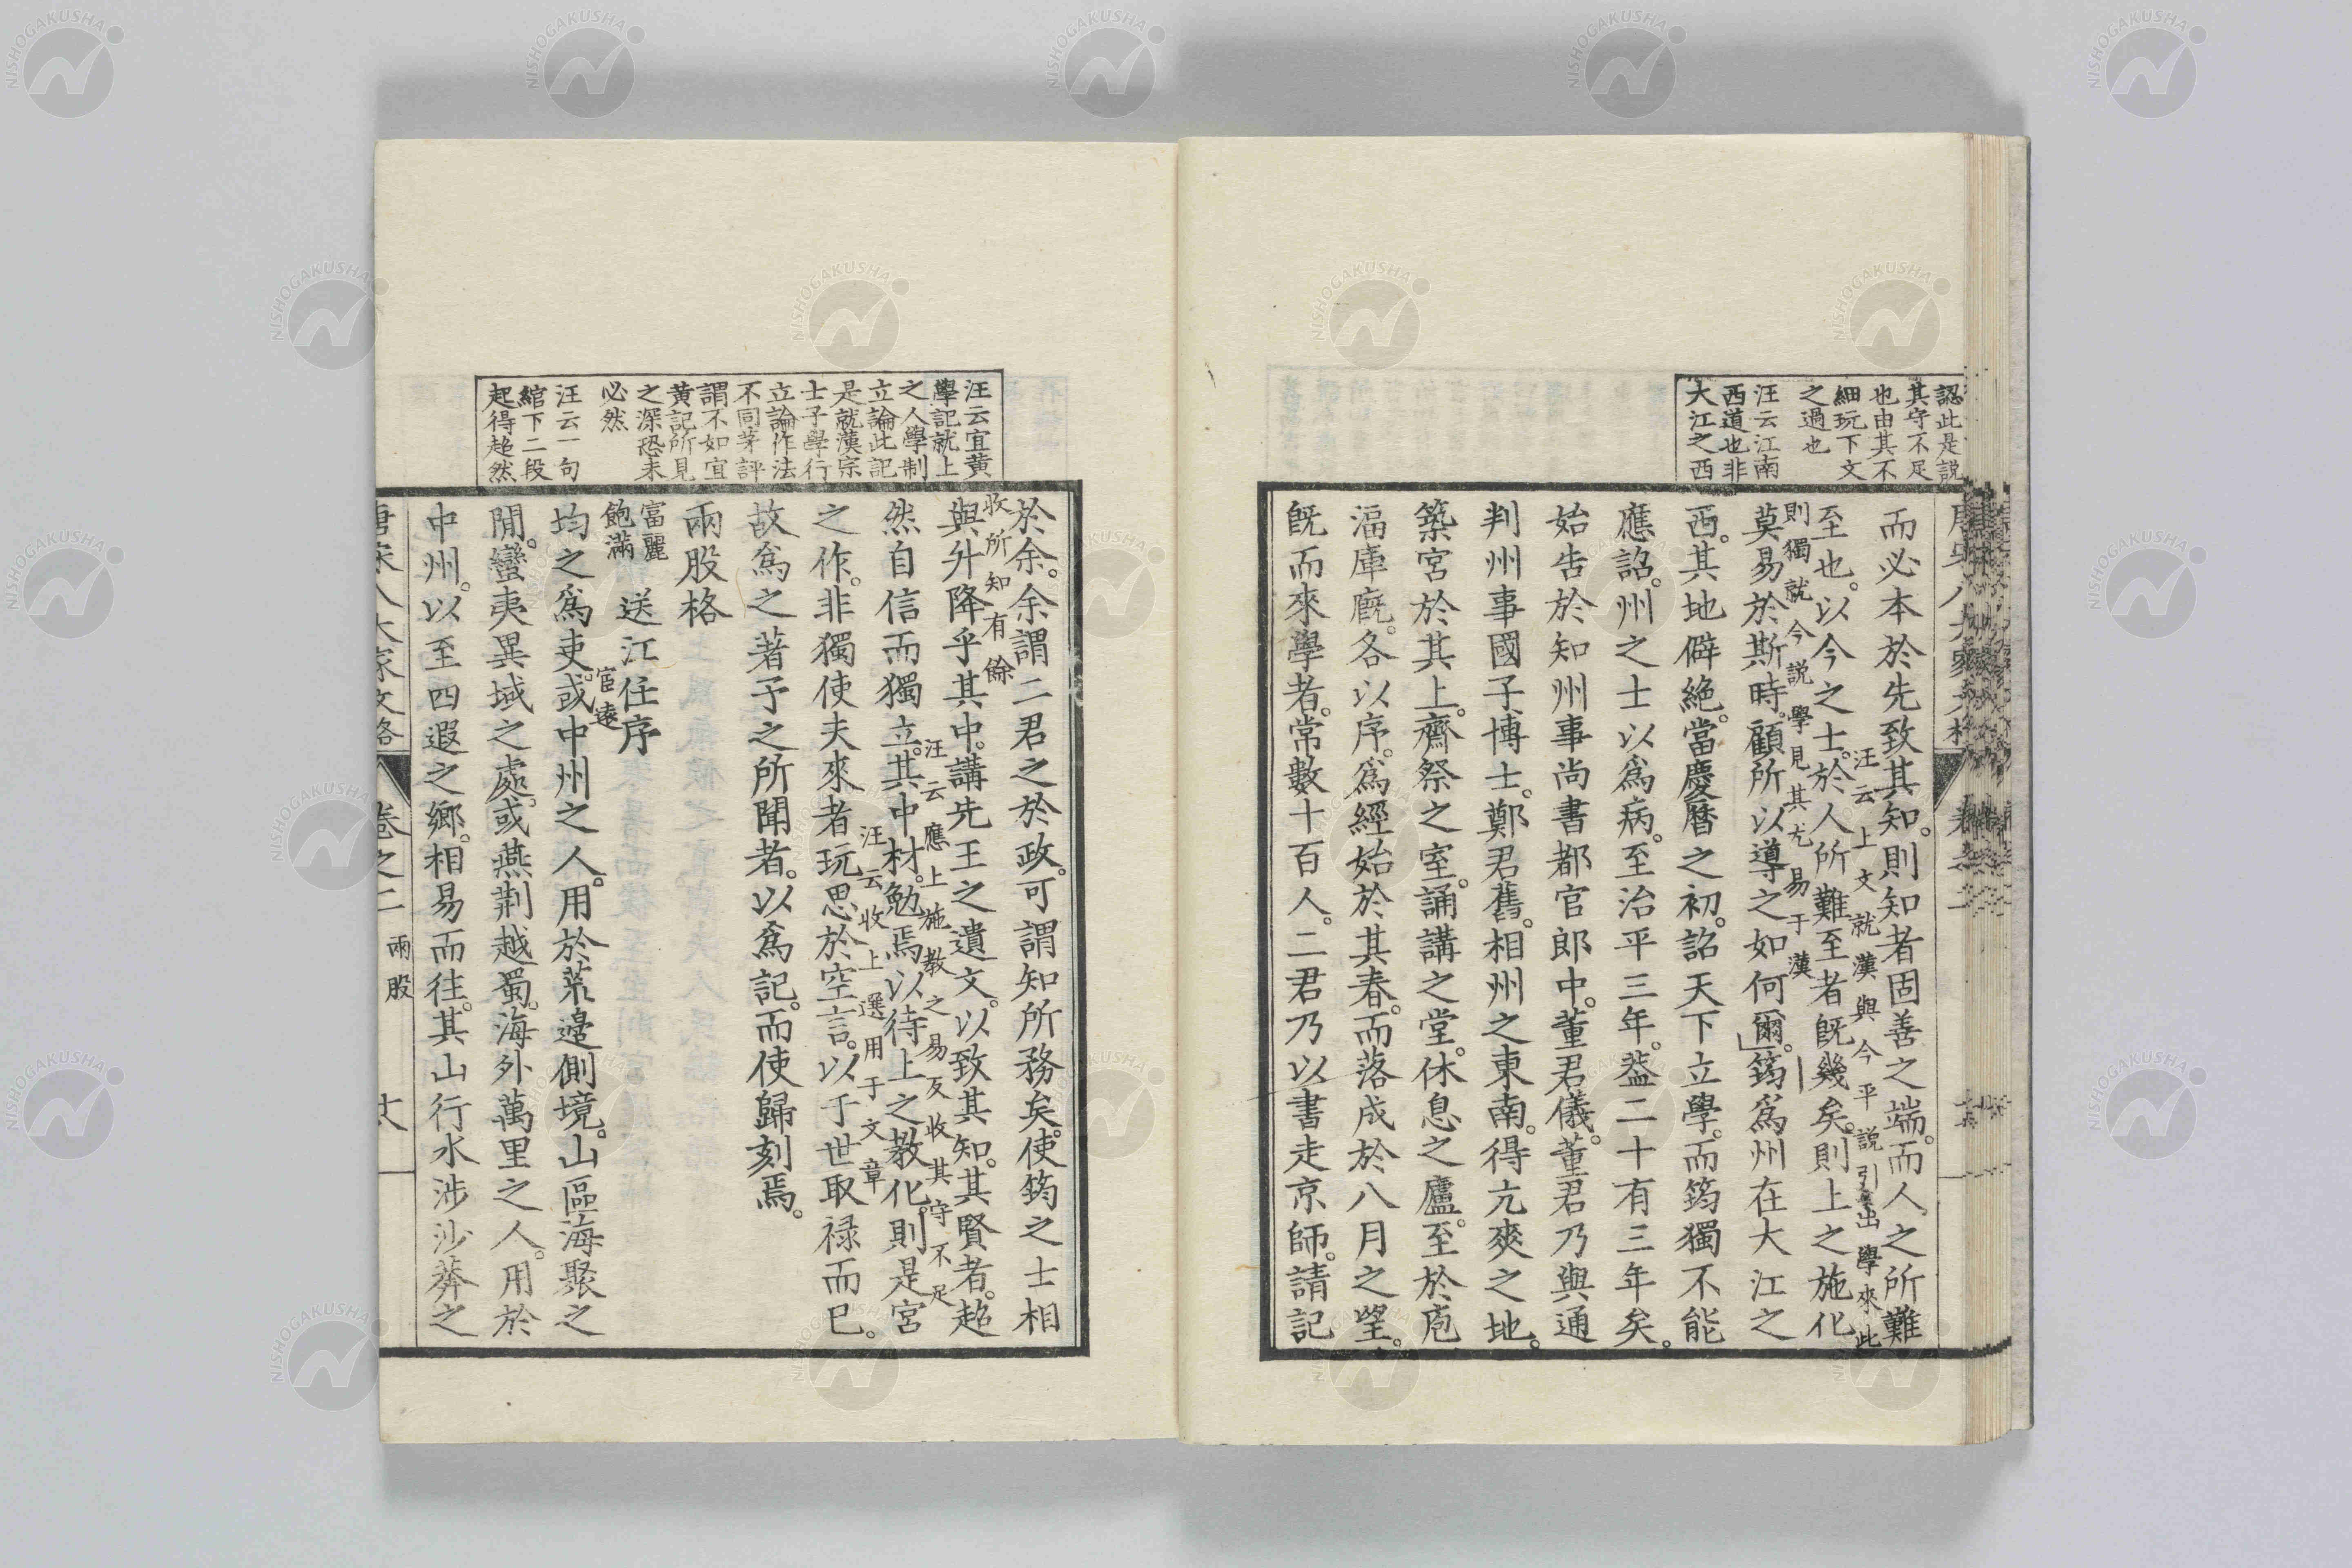 認此是説
其守不足
也由其不
細玩下文
之過也
汪云江南
西道也非
大江之西
而必本於先致其知。則知者固善之端。而人之所難
汪云上文就漢與今平説引出學來此
至也。以今之士。於人所難至者既幾矣。則上之施化
則獨就今説學見其尤易于漢
莫易於斯時。顧所以導之如何爾。」筠爲州在大江之
西。其地僻絶。當慶曆之初。詔天下立學。而筠獨不能
應詔。州之士以爲病。至治平三年。葢二十有三年矣。
始告於知州事尚書都官郎中。董君儀。董君乃與通
判州事國子博士。鄭君蒨。相州之東南。得亢爽之地。
築宮於其上。齋祭之室。誦講之堂。休息之廬。至於庖
湢庫廐。各以序。爲經始於其春。而落成於八月之望。
既而來學者。常數十百人。二君乃以書走京師。請記
汪云宜黄
學記就上
之人學制
立論此記
是就漢宗
士子學行
立論作法
不同茅評
謂不如宜
黄記所見
之深恐未
必然
汪云一句
綰下二段
起得超然
於余。余謂二君之於政。可謂知所務矣。使筠之士相
收所知有餘
與升降乎其中。講先王之遺文。以致其知。其賢者。超
汪云應上施教之易反收其守不足
然自信而獨立。其中材。勉焉以待上之教化。則是宮
汪云收上選用于文章
之作。非獨使夫來者玩思於空言。以于世取禄而已。
故爲之著予之所聞者。以爲記。而使歸刻焉。
兩股格
富麗
飽滿
送江任序
宦遠
均之爲吏。或中州之人。用於荒邉側境。山區海聚之
閒。蠻夷異域之處。或燕荆越蜀。海外萬里之人。用於
中州。以至四遐之鄉。相易而往。其山行水涉沙莽之
唐宋八大家文格
卷之二
兩股